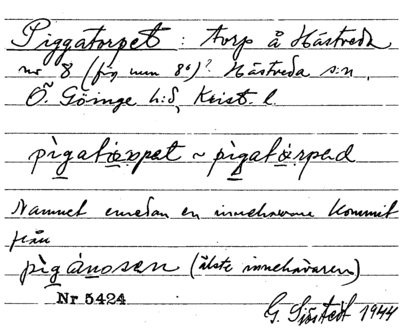 Piggatorpet : torp å Hästveda
nr 8 (förr num 8⁶)? Hästveda s:n,
Ö. Göinge h:d, Krist. l.
pìgatɷrpet ~ pìgatɷrped
Namnet emedan en innehavare kommit
från
pìgánosen (älste innehavaren)
Nr 5424
G. Sjöstedt 1944